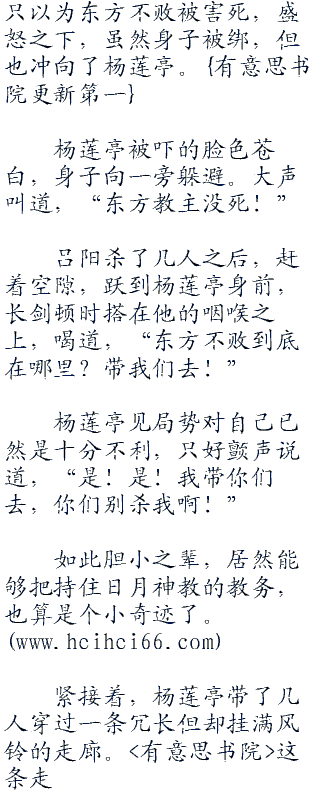 只以为东方不败被害死，盛
怒之下，虽然身子被绑，但
也冲向了杨莲亭。{有意思书
院更新第一}
杨莲亭被吓的脸色苍
白，身子向一旁躲避。大声
叫道，“东方教主没死！”
吕阳杀了几人之后，赶
着空隙，跃到杨莲亭身前，
长剑顿时搭在他的咽喉之
上，喝道，“东方不败到底
在哪里？带我们去！”
杨莲亭见局势对自己已
然是十分不利，只好颤声说
道，“是！是！我带你们
去，你们别杀我啊！”
如此胆小之辈，居然能
够把持住日月神教的教务，
也算是个小奇迹了。
(www.hcihci66.com)
紧接着，杨莲亭带了几
人穿过一条冗长但却挂满风
铃的走廊。<有意思书院>这
条走